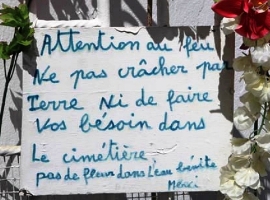 Attention au feu
Ne pas crâcher par
Terre Ni de faire
Vos bésoin dans
Le cimétière
pas de fleur dans l'eau bénite
Merci